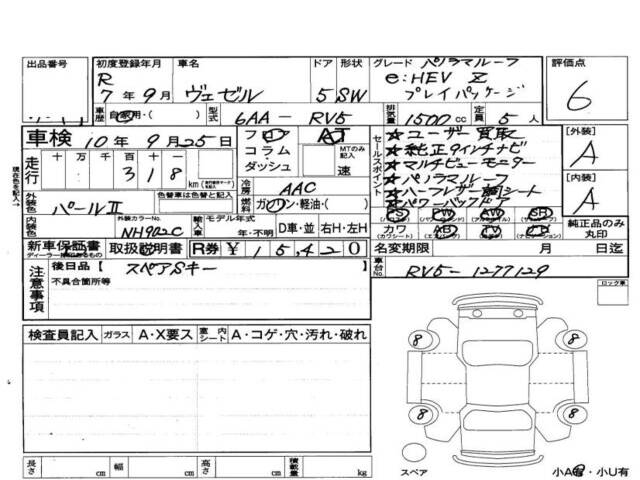 出品番号
初度登録年月 車名 ドア 形状 グレード パノラマルーフ 評価点
R 7年 9月 ヴェゼル 5 SW e:HEV Z プレイパッケージ 6
車歴 自家用・( ) 型式 6AA - RV5 排気量 1500 cc 定員 5 人
車検 10年 9月 25日 フロア AT ★ユーザー買取 [外装]
コラム MTのみ記入 ★純正9インチナビ A
走行 十万千百十 318 km ダッシュ 速 セールスポイント ★マルチビューモニター
冷房 AAC ★パノラマルーフ [内装]
外装色 パールⅡ 色替車は色替と記入 燃料 ガソリン・軽油・( ) ★ハーフレザー調シート A
★パワーバックドア
内装色 外装カラーNo. NH902C 輸入車 モデル年式 年・不明 D車・並 右H・左H PS PW AW SR
カワ AB TV ナビ 純正品のみ丸印
新車保証書 取扱説明書 R券 ¥15,420 名変期限 月 日迄
ディーラー捺印のあるもの
注意事項 後日品 [スペアSキー 車台No. RV5-1277129
不具合箇所等 ロック車
検査員記入 ガラス A・X要ス 室内シート A・コゲ・穴・汚れ・破れ
8 8
8 8
長さ cm 幅 cm 高さ cm 積載量 kg スペア 小A有・小U有
現在色を記入→